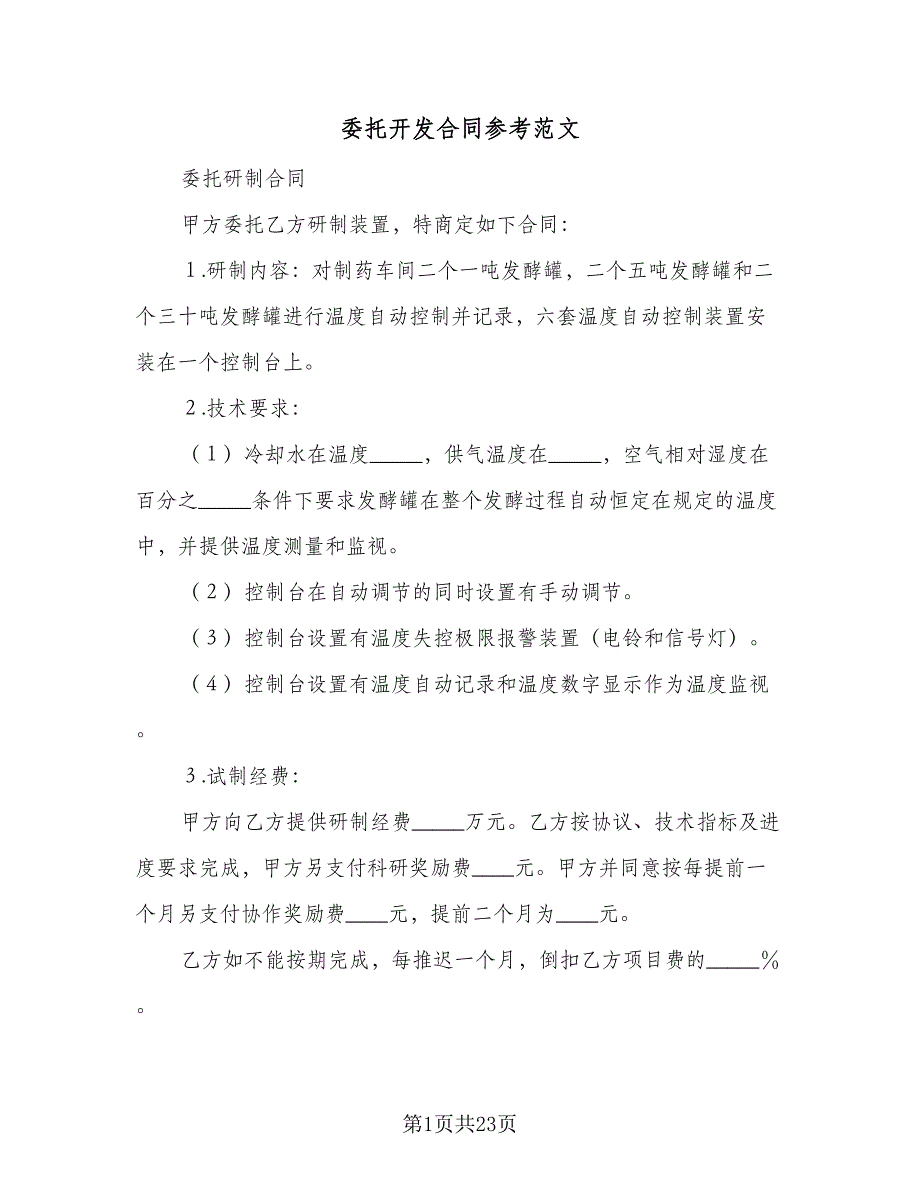 委托开发合同参考范文
委托研制合同
甲方委托乙方研制装置，特商定如下合同：
１.研制内容：对制药车间二个一吨发酵罐，二个五吨发酵罐和二
个三十吨发酵罐进行温度自动控制并记录，六套温度自动控制装置安
装在一个控制台上。
２.技术要求：
（１）冷却水在温度_____，供气温度在_____，空气相对湿度在
百分之_____条件下要求发酵罐在整个发酵过程自动恒定在规定的温度
中，并提供温度测量和监视。
（２）控制台在自动调节的同时设置有手动调节。
（３）控制台设置有温度失控极限报警装置（电铃和信号灯）。
（４）控制台设置有温度自动记录和温度数字显示作为温度监视
。
３.试制经费：
甲方向乙方提供研制经费_____万元。乙方按协议、技术指标及进
度要求完成，甲方另支付科研奖励费____元。甲方并同意按每提前一
个月另支付协作奖励费____元，提前二个月为____元。
乙方如不能按期完成，每推迟一个月，倒扣乙方项目费的_____％
。
第1页共23页